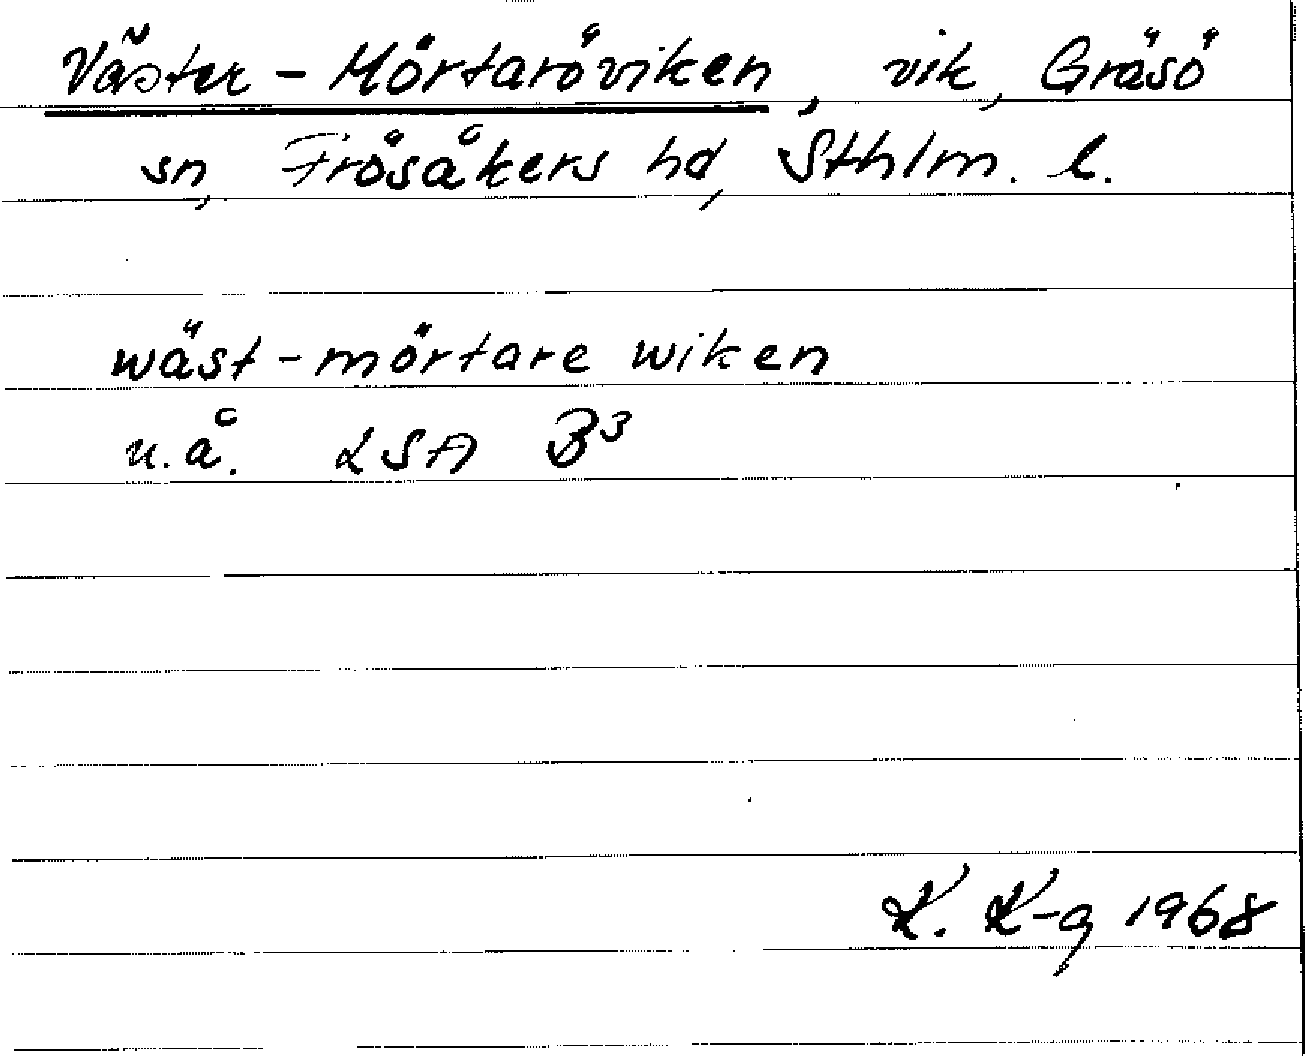 Väster-Mörtaröviken, vik, Gräsö
sn, Frösåkers hd, Sthlm. l.
wäst-mörtare wiken
u.å. LSA B³
K. K-g 1968